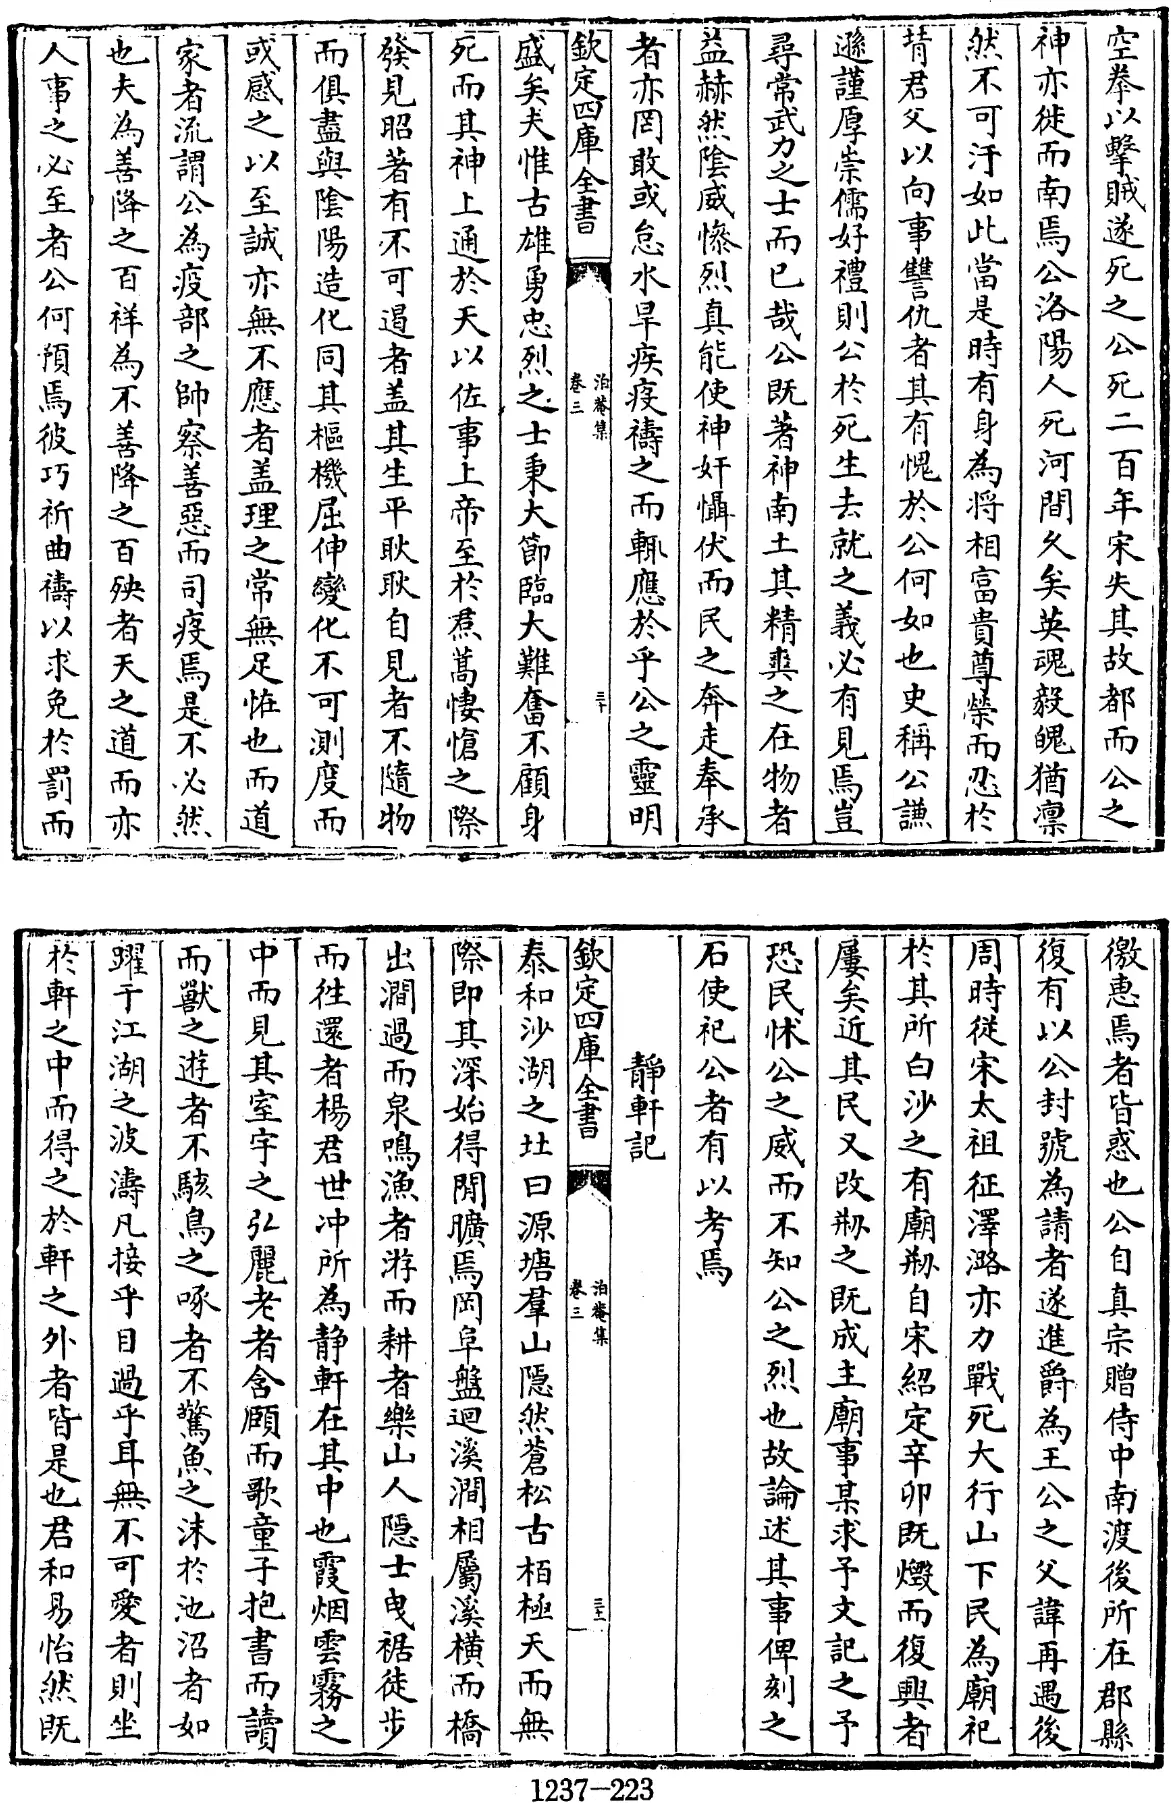 空拳以擊賊遂死之公死二百年宋失其故都而公之
神亦徙而南焉公洛陽人死河間久矣英魂毅魄猶凛
然不可汙如此當是時有身為將相富貴尊榮而忍於
背君父以向事讐仇者其有愧於公何如也史稱公謙
遜謹厚崇儒好禮則公於死生去就之義必有見焉豈
尋常武力之士而已哉公既著神南土其精爽之在物者
益赫然陰威慘烈真能使神奸懾伏而民之奔走奉承
者亦罔敢或怠水旱疾疫禱之而輒應於乎公之靈明
欽定四庫全書
泊菴集
卷三
三十
盛矣夫惟古雄勇忠烈之士秉大節臨大難奮不顧身
死而其神上通於天以佐事上帝至於焄蒿悽愴之際
發見昭著有不可遏者盖其生平耿耿自見者不隨物
而俱盡與陰陽造化同其樞機屈伸變化不可測度而
或感之以至誠亦無不應者盖理之常無足恠也而道
家者流謂公為疫部之帥察善惡而司疫焉是不必然
也夫為善降之百祥為不善降之百殃者天之道而亦
人事之必至者公何預焉彼巧祈曲禱以求免於罰而
徼惠焉者皆惑也公自真宗贈侍中南渡後所在郡縣
復有以公封號為請者遂進爵為王公之父諱再遇後
周時從宋太祖征澤潞亦力戰死大行山下民為廟祀
於其所白沙之有廟剏自宋紹定辛卯既燬而復興者
屢矣近其民又改剏之既成主廟事某求予文記之予
恐民怵公之威而不知公之烈也故論述其事俾刻之
石使祀公者有以考焉
靜軒記
欽定四庫全書
泊菴集
卷三
三十一
泰和沙湖之壮曰源塘羣山隠然蒼松古栢極天而無
際即其深始得閒曠焉岡阜盤迴溪澗相屬溪横而橋
出澗過而泉鳴漁者游而耕者樂山人隠士曳裾徒步
而徃還者楊君世冲所為静軒在其中也霞烟雲霧之
中而見其室宇之弘麗老者含頤而歌童子抱書而讀
而獸之遊者不駭鳥之啄者不驚魚之沫於池沼者如
躍于江湖之波濤凡接乎目過乎耳無不可愛者則坐
於軒之中而得之於軒之外者皆是也君和易怡然既
1237—223